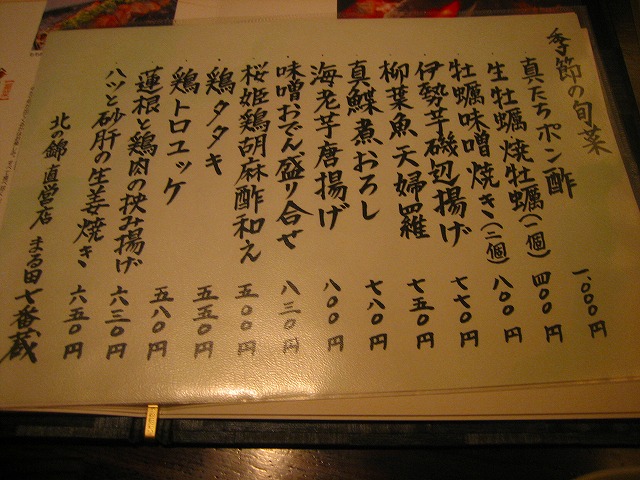 季節の旬菜
真たちポン酢 一、〇〇〇円
生牡蠣 焼牡蠣(一個) 四〇〇円
牡蠣味噌焼き(二個) 八〇〇円
伊勢芋磯辺揚げ 七七〇円
柳葉魚天婦羅 七五〇円
真鰈煮おろし 七八〇円
海老芋唐揚げ 八〇〇円
味噌おでん盛り合せ 八三〇円
桜姫鶏胡麻酢和え 五〇〇円
鶏タタキ 五五〇円
鶏トロユッケ 五八〇円
蓮根と鶏肉の挟み揚げ 六三〇円
ハツと砂肝の生姜焼き 六五〇円
北の錦 直営店 まる田 七番蔵